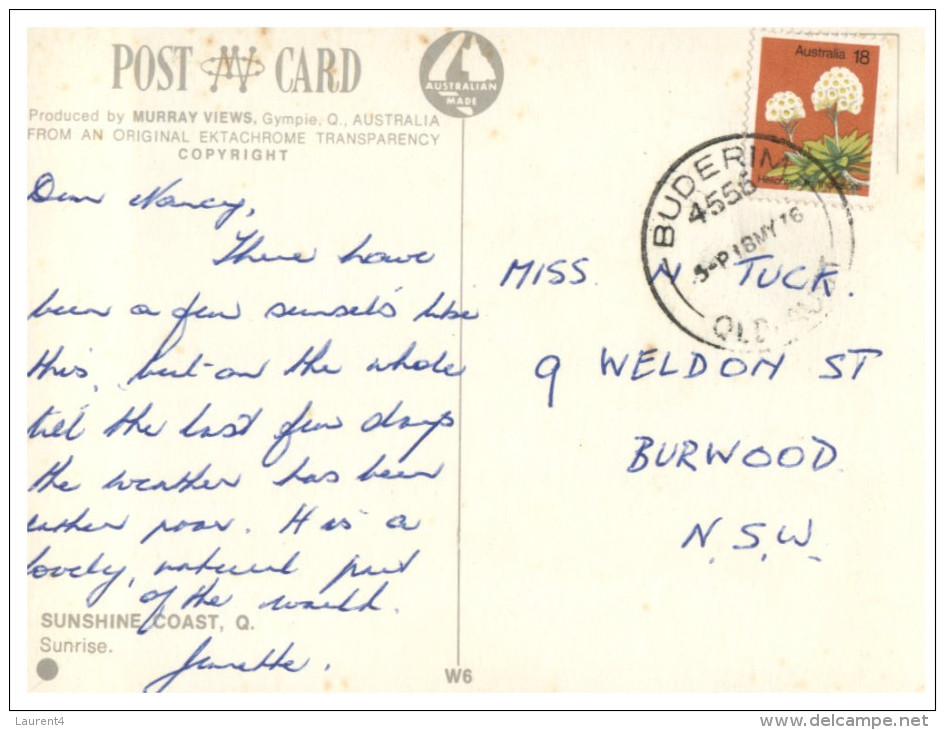 POST CARD
AUSTRALIAN
MADE
Produced by MURRAY VIEWS, Gympie, Q., AUSTRALIA
FROM AN ORIGINAL EKTACHROME TRANSPARENCY
COPYRIGHT
Australia 18
BUDERIM
4556
5-P 18MY76
QLD
Dear Nancy,
There have
been a few sunsets like
this, but on the whole
till the last few days
the weather has been
rather poor. It is a
lovely, natural part
of the world.
Janette.
MISS. N. TUCK.
9 WELDON ST
BURWOOD.
N.S.W.
SUNSHINE COAST, Q.
Sunrise.
W6
Laurent4
delcampe.net